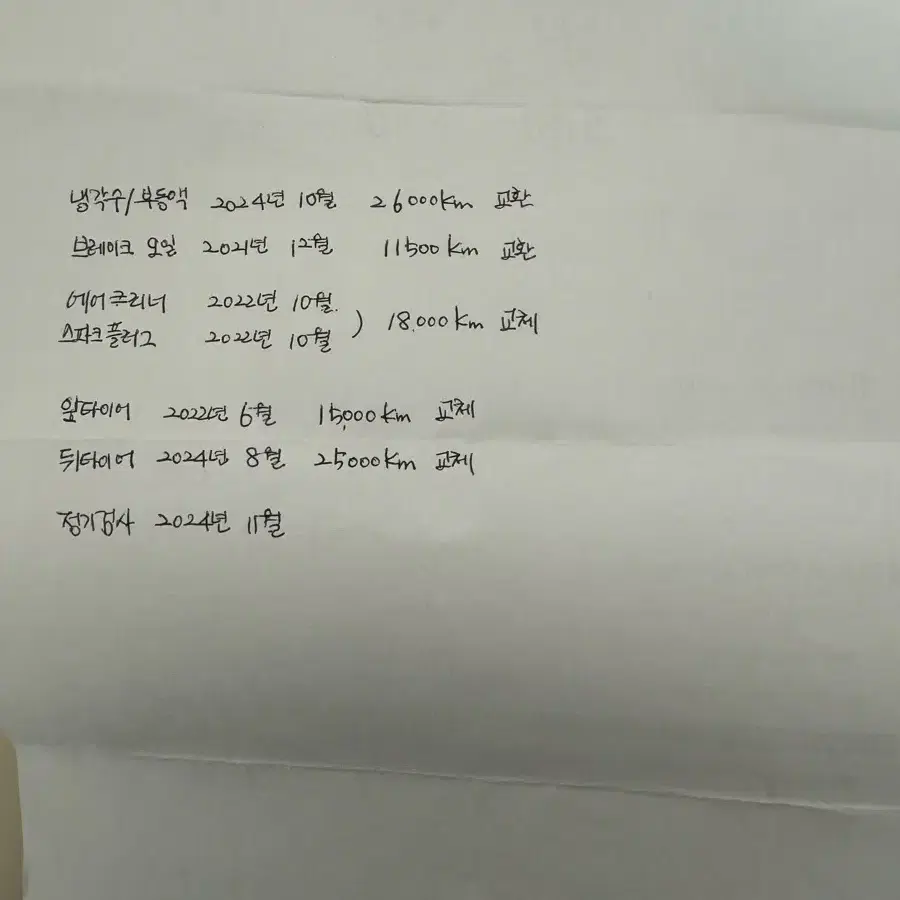 냉각수/부동액 2024년 10월 26000km 교환
브레이크 오일 2021년 12월 11500km 교환
에어크리너 2022년 10월.
스파크플러그 2022년 10월 ) 18.000km 교체
앞타이어 2022년 6월 15,000km 교체
뒤타이어 2024년 8월 25000km 교체
정기검사 2024년 11월